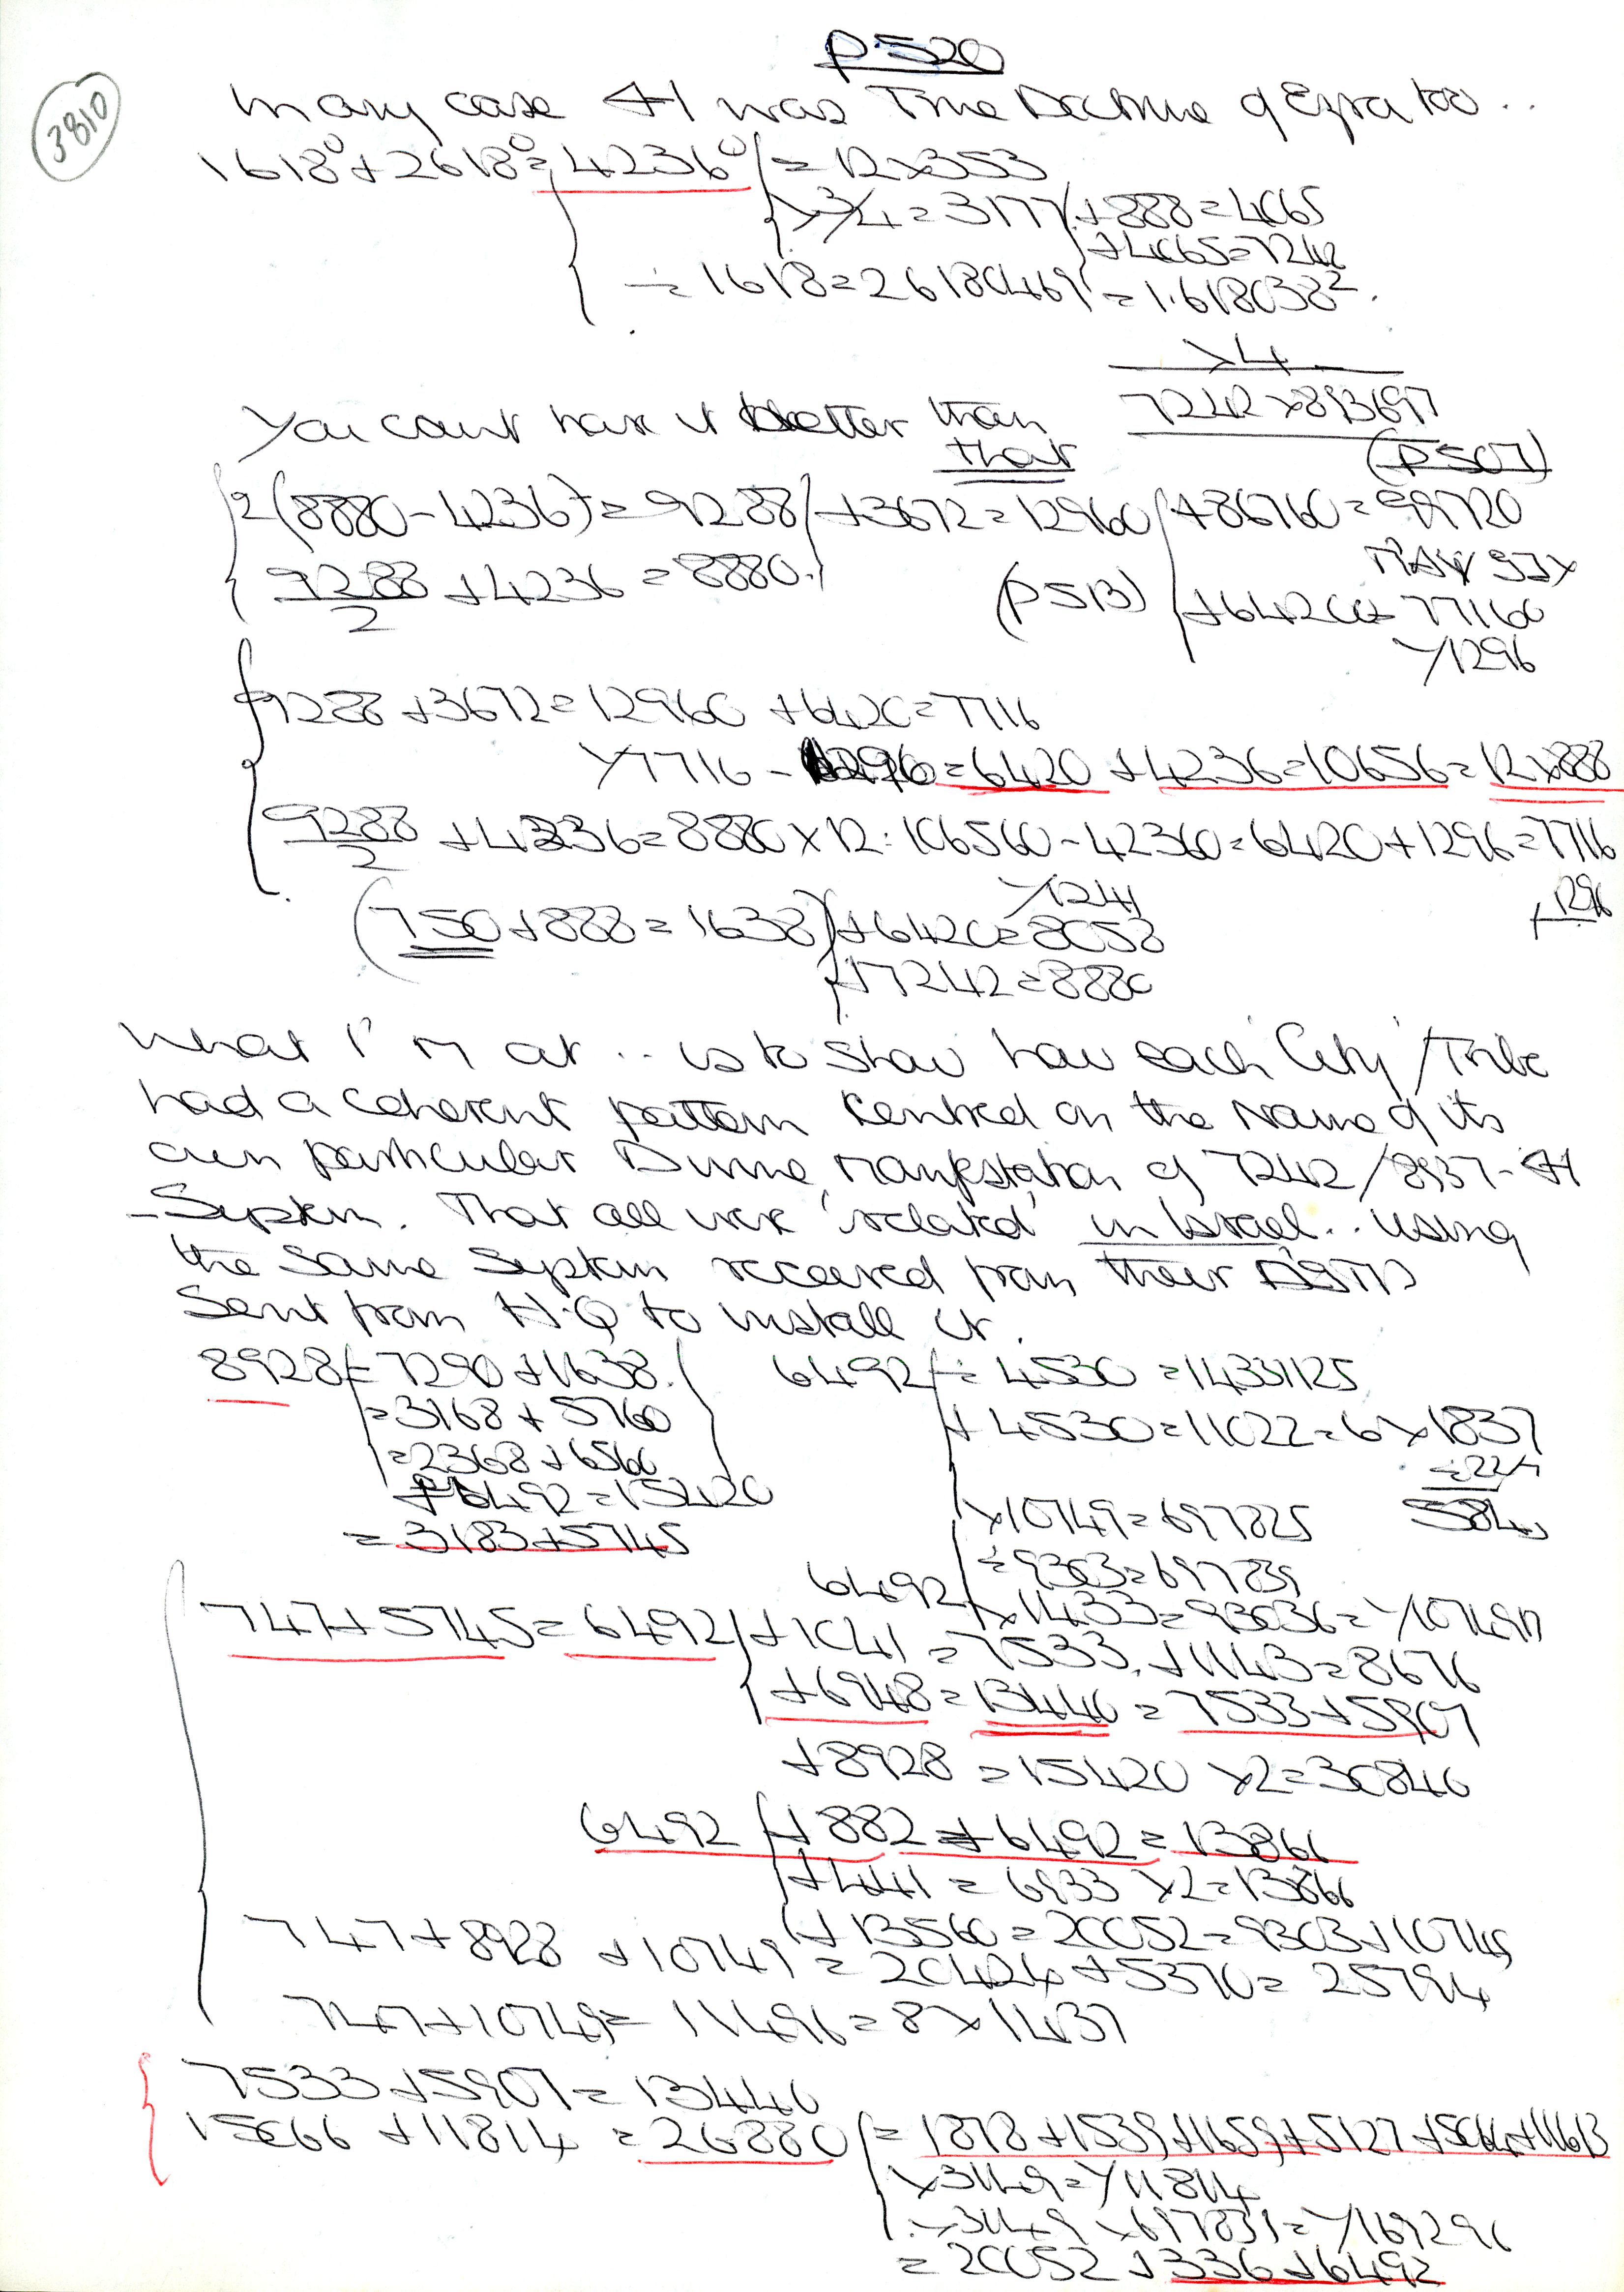 P520
3810
In any case A1 was The Doctrine of Ezra too ..
1618° + 2618° = 4236° = 12 x 353
x 3/4 = 3177 + 888 = 4065
+ 4065 = 7242
÷ 1618 = 26180469 = 1.618038².
x 4
7242 x 893697
You cant have it better than
that
(P507)
2(8880 - 4236) = 9288 + 3672 = 12960 + 86760 = 99720
9288/2 + 4236 = 8880.
(P513) + 64200 = 77160
Y1296
9288 + 3672 = 12960 + 6420 = 7716
Y7716 - 1296 = 6420 + 4236 = 10656 = 12 x 888
9288/2 + 4236 = 8880 x 12 : 106560 - 42360 = 6420 + 1296 = 7716
Y1241
+ 1296
(750 + 888 = 1638) + 6420 = 8058
+ 7242 = 8880
What I'm at .. is to show how each City/Tribe
had a coherent pattern centred on the Name of its
own particular Divine Manifestation of 7242/8937 - A1
- System. That all were 'related' in Israel .. using
the same System received from their
sent from H.Q to install it.
8928 = 7290 + 1638.
= 3168 + 5760
= 2368 + 6560
+ 6492 = 15420
= 3183 + 5745
6492 ÷ 4530 = 14331125
+ 4530 = 11022 = 6 x 1837
x 10749 = 697825
÷ 9303 = 697839
6492 x 1433 = 93036 = Y107491
747 + 5745 = 6492 + 1041 = 7533 + 1143 = 8676
+ 6948 = 13440 = 7533 + 5907
+ 8928 = 15420 x 2 = 30840
6492 + 882 + 6492 = 13866
+ 441 = 6933 x 2 = 13866
+ 13560 = 20052 = 9303 + 10749
747 + 8928 + 10749 = 20424 + 5370 = 25794
747 + 10749 = 11496 = 8 x 1437
7533 + 5907 = 13440
15066 + 11814 = 26880 = 1878 + 1539 + 1659 + 5127 + 5064 + 11613
x 3149 = Y11814
x 3149 x 697839 = Y169296
= 20052 + 336 + 6492